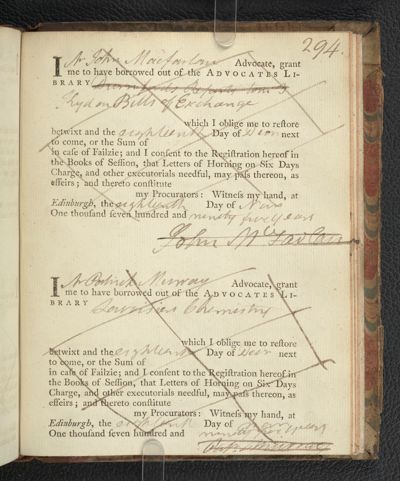 294.
I Mr John Macfarlan Advocate, grant
me to have borrowed out of the ADVOCATES LI-
BRARY
Kyd on Bills of Exchange
which I oblige me to reſtore
betwixt and the eighteenth Day of Decr next
to come, or the Sum of
in caſe of Failzie; and I conſent to the Regiſtration hereof in
the Books of Seſſion, that Letters of Horning on Six Days
Charge, and other executorials needful, may paſs thereon, as
effeirs; and thereto conſtitute
my Procurators: Witneſs my hand, at
Edinburgh, the eighteenth Day of Novr
One thouſand ſeven hundred and ninety five years
John McFarlan
I Mr Patrick Murray Advocate, grant
me to have borrowed out of the ADVOCATES LI-
BRARY
Chemistry
which I oblige me to reſtore
betwixt and the eighteenth Day of Decr next
to come, or the Sum of
in caſe of Failzie; and I conſent to the Regiſtration hereof in
the Books of Seſſion, that Letters of Horning on Six Days
Charge, and other executorials needful, may paſs thereon, as
effeirs; and thereto conſtitute
my Procurators: Witneſs my hand, at
Edinburgh, the eighteenth Day of
One thouſand ſeven hundred and ninety five years